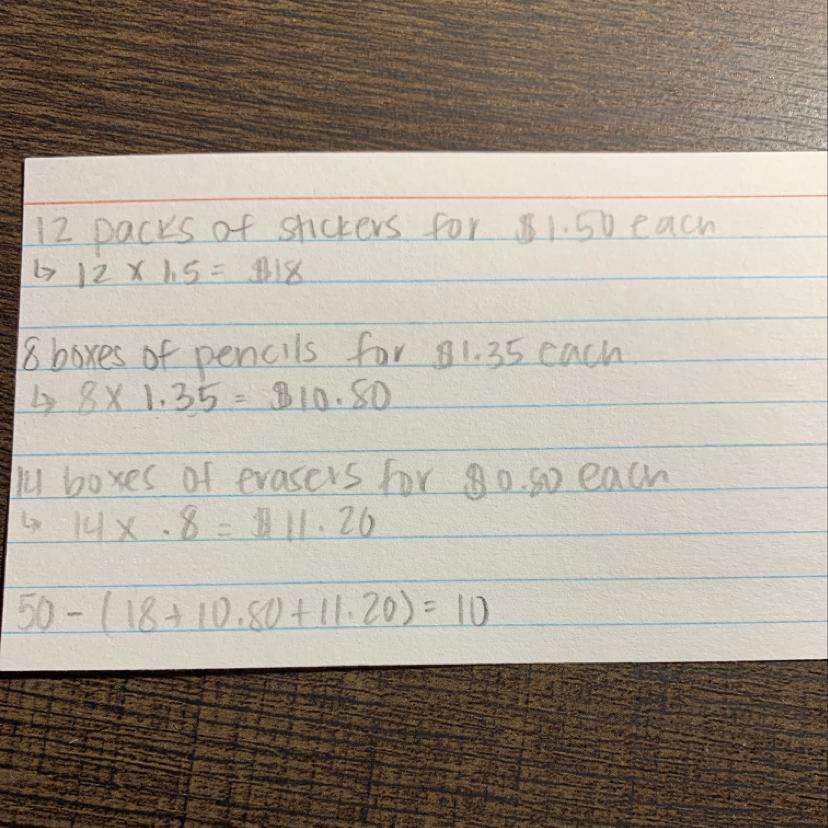 12 packs of stickers for $1.50 each
↳ 12 x 1.5 = $18
8 boxes of pencils for $1.35 each
↳ 8 x 1.35 = $10.80
14 boxes of erasers for $0.80 each
↳ 14 x .8 = $11.20
50 - (18 + 10.80 + 11.20) = 10